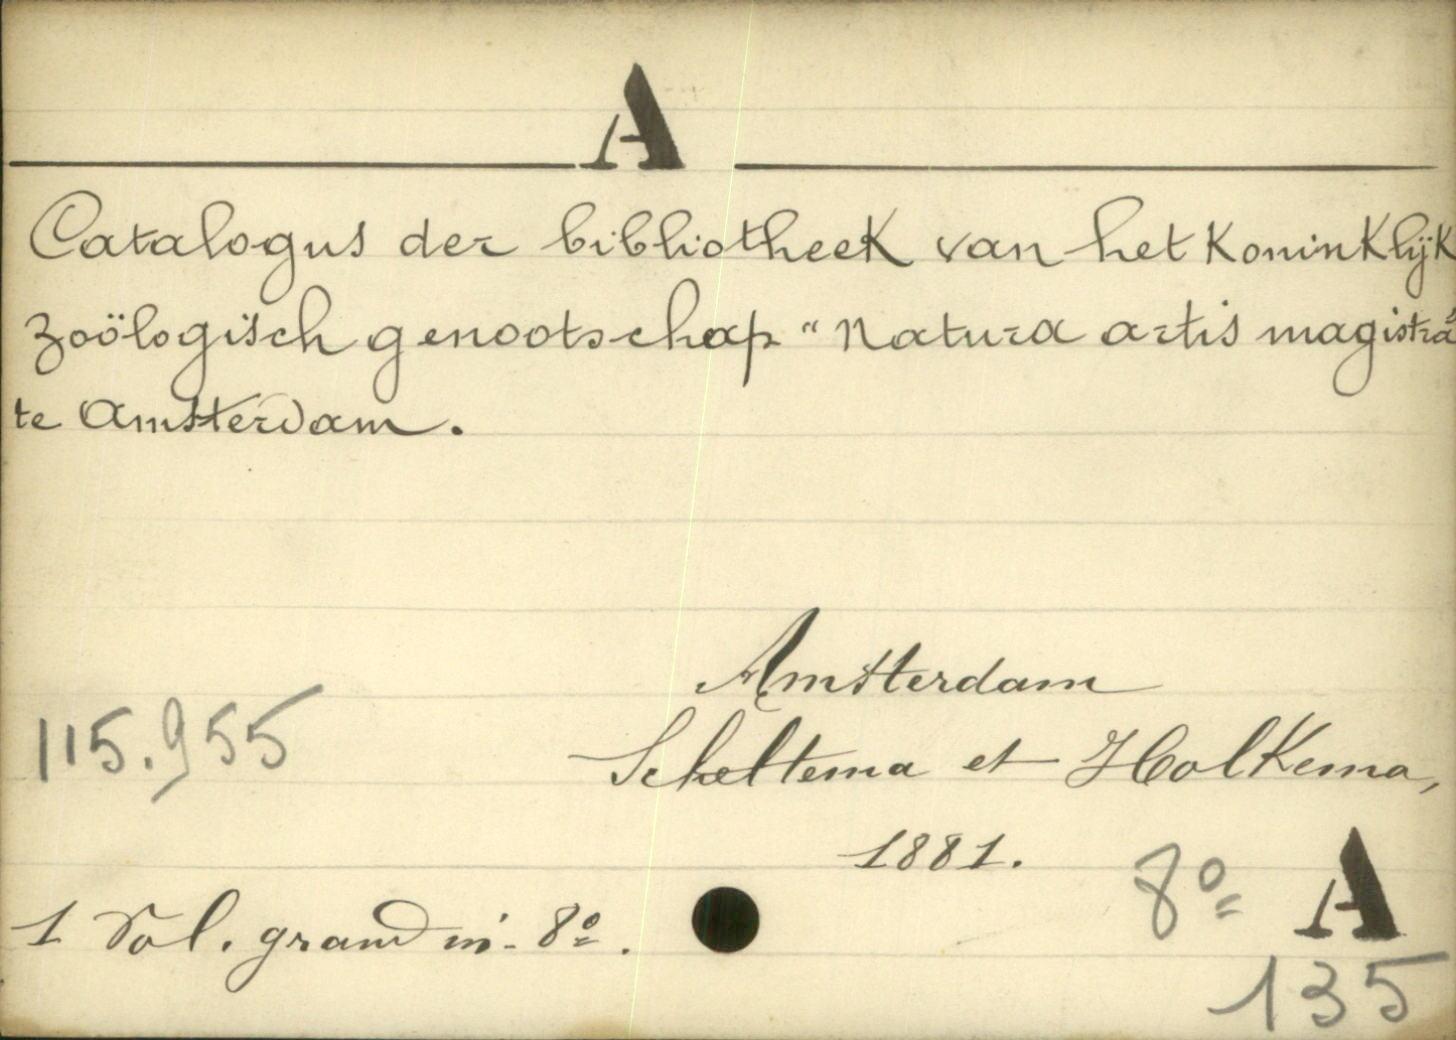 A
Catalogus der bibliotheek van het Koninklijk
zoölogisch genootschap "Natura artis magistra"
te Amsterdam.
Amsterdam
115.955
Scheltema et Holkema,
1881.
8º A
1 Vol. grand in-8º.
135